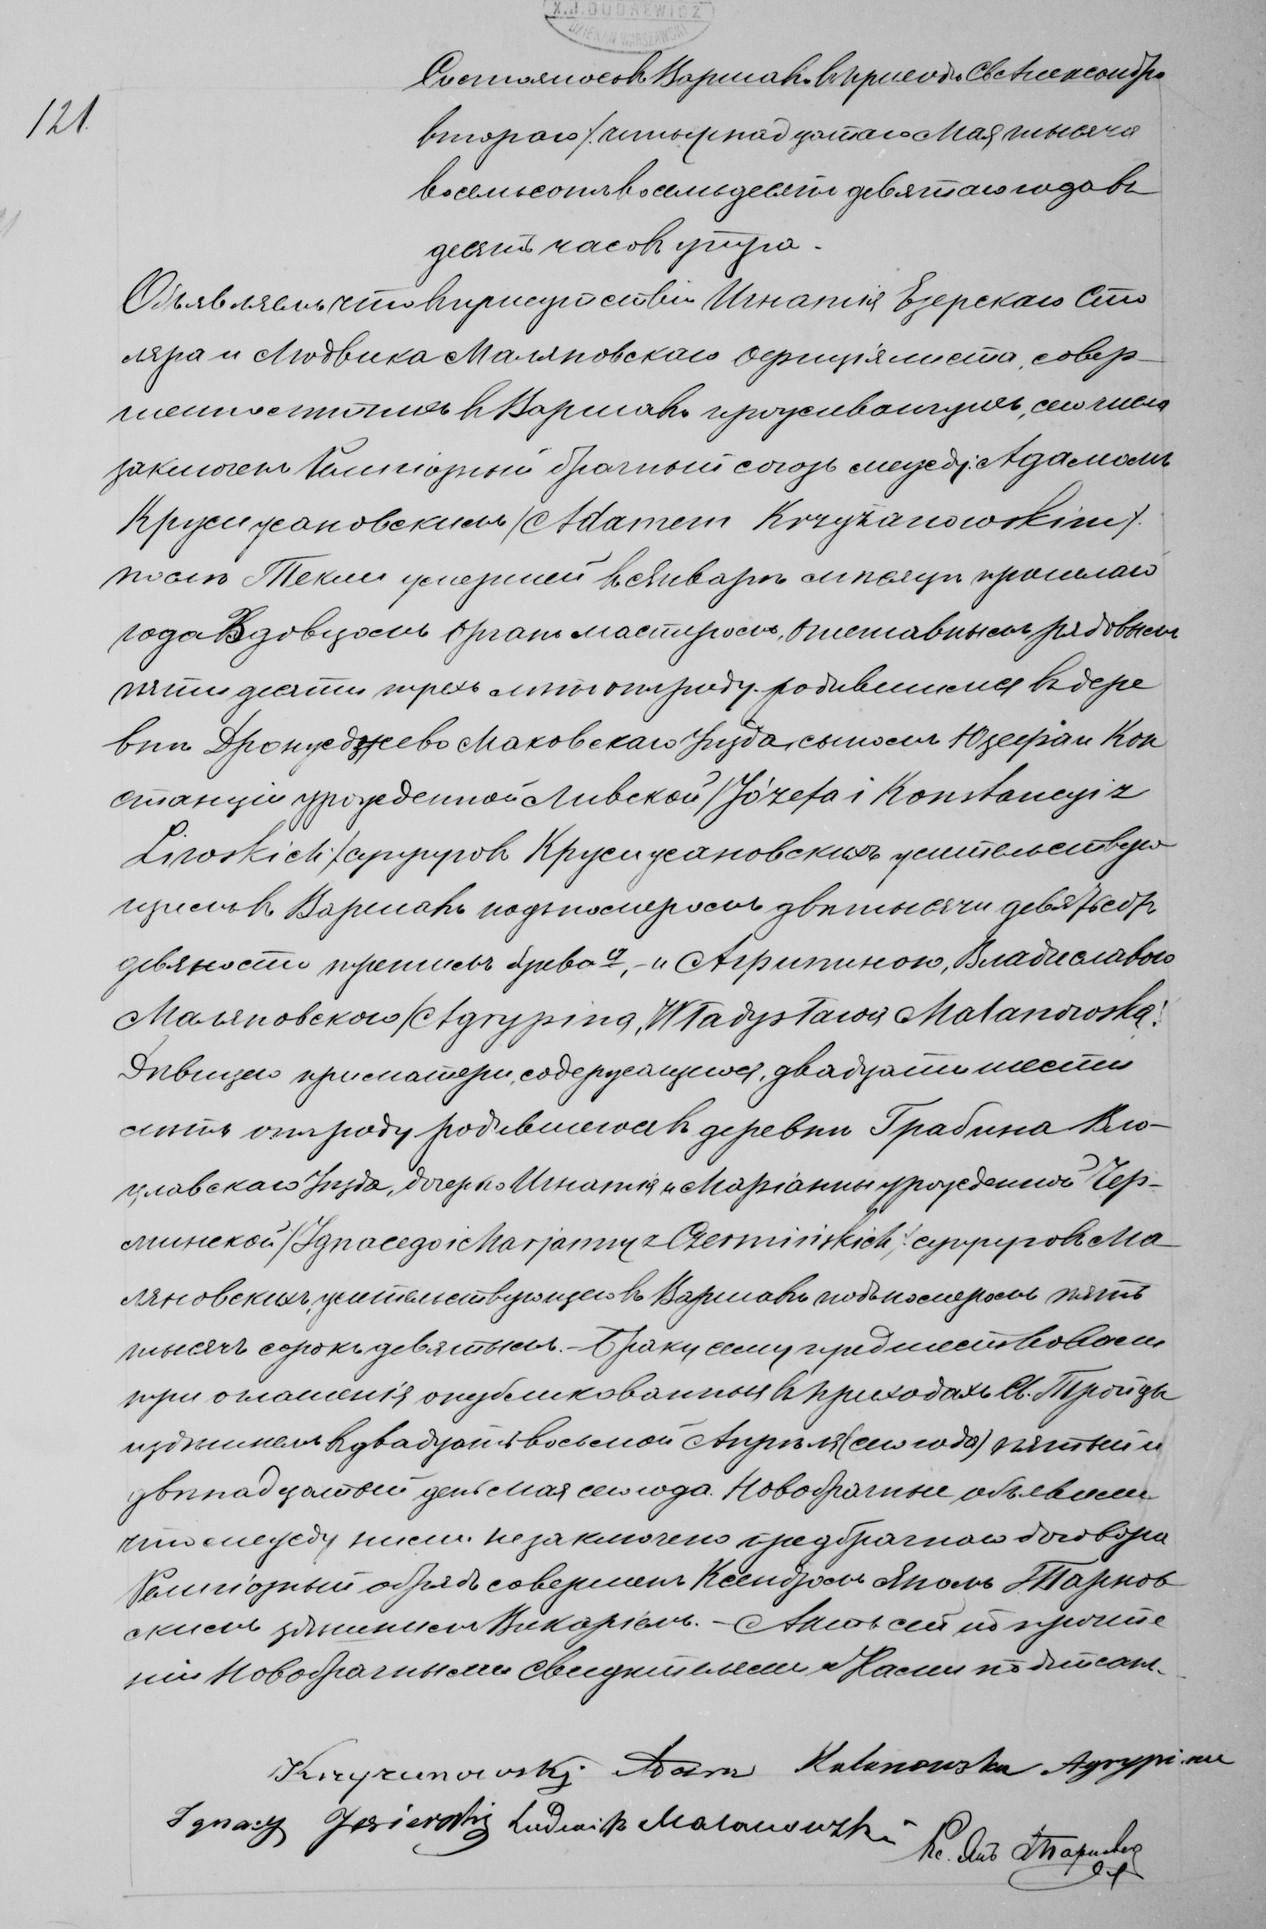 X.J.DUDREWICZ
DZIEKAN WARSZAWSKI
121.
Состоялось въ Варшавѣ въ приходѣ Св Александра
втораго/четырнадцатаго Мая тысяча
восемьсотъ восемьдесятъ девятаго года въ
десять часовъ утра.
Объявляемъ что въ присутствіи Игнатія Езерскаго Сто
ляра и Людвика Маляновскаго Оффиціялиста, совер-
шеннолѣтнихъ въ Варшавѣ проживающихъ, сего числа
заключенъ Религіозный брачный союзъ между: Адамомъ
Кржижановскимъ /Adamem Krzyżanowskim/
послѣ Текли умершей въ Январѣ мѣсяцѣ прошлаго
года Вдовцомъ Органмастеромъ, отставнымъ рядовымъ
пятидесяти трехъ лѣтъ отъ роду родившимся въ дере
внѣ Дронжджево Маковскаго Уѣзда, сыномъ Юзефа и Кон
станціи урожденной Ливской /Józefa i Konstancyi z
Liwskich/ супруговъ Кржижановскихъ жительствую
щимъ въ Варшавѣ подъ номеромъ двѣ тысячи девятьсотъ
девяносто третьимъ буква а, - и Агрипиною, Владиславою
Маляновскою /Agrypiną, Władysławą Malanowską/
Дѣвицею при матери, содержащеюся, двадцати шести
лѣтъ отъ роду родившеюся въ деревнѣ Грабина Вло-
цлавскаго Уѣзда, дочерью Игнатія и Маріанны урожденной Чер-
минской /Ignacego i Marjanny z Czermińskich/ супруговъ Ма
ляновскихъ, жительствующею въ Варшавѣ подъ номеромъ пять
тысячъ сорокъ девятымъ. - Браку сему предшествовали
три оглашенія опубликованныя въ приходахъ Св. Тройцы
и здѣшнемъ въ двадцать восьмой Апрѣля (сего года) пятый и
двѣнадцатый день Мая сего года. Новобрачные объявили
что между ними не заключено предбрачнаго договора
Религіозный обрядъ совершенъ Ксендзомъ Яномъ Тарнов
скимъ здѣшнимъ Викаріемъ. - Актъ сей по прочте
ніи Новобрачными Свидѣтелями и Нами подписанъ.
Krzyzanowski Adam Malanowska Agrypina
Ignacy Jezierski Ludwik Malanowski
Кс. Янъ Тарновскій